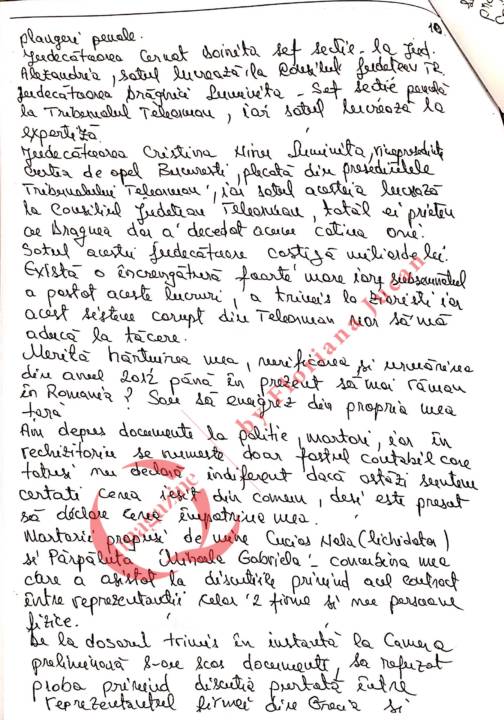 10
plangeri penale.
Judecătoarea Cernat Doinita sef sectie la Jud.
Alexandria, sotul lucrează la Consiliul Judetean TR.
Judecătoarea Drăghici Luminita - Sef Sectie penală
la Tribunalul Teleorman, iar sotul lucrează la
expertiză.
Judecătoarea Cristina Ninu Luminita, vicepresedinte
Curtea de apel Bucuresti, plecată din presedintele
Tribunalului Teleorman, iar sotul acesteia lucrează
la Consiliul Judetian Teleorman, tatăl ei prieten
cu Dragnea dar a decedat acum cativa ani.
Sotul acestei judecătoare castigă miliarde lei.
Există o încrengătură foarte mare iar subsemnatul
a postat aceste lucruri, a trimis la ziaristi iar
acest sistem corupt din Teleorman vor să mă
aducă la tăcere.
Merită hărtuirea mea, verificarea si urmărirea
din anul 2012 până în prezent să mai rămân
în Romania? Sau să emigrez din propria mea
tară
Am depus documente la politie, martori, iar în
rechizitoriu se numeste doar fostul contabil care
totusi nu declară indiferent dacă astăzi suntem
certati ceva iesit din comun, desi este presat
să declare ceva împotriva mea.
Martorii propusi de mine Cucias Nela (lichidator)
si Părpălută Mihaela Gabriela - concubina mea
care a asistat la discutiile privind acel contract
între reprezentantii celor 2 firme si nu persoane
fizice.
De la dosarul trimis în instantă la Camera
preliminară s-au scos documente, sa refuzat
proba privind discutia purtată între
reprezentantul firmei din Grecia si
magazine by Floriana Jucan